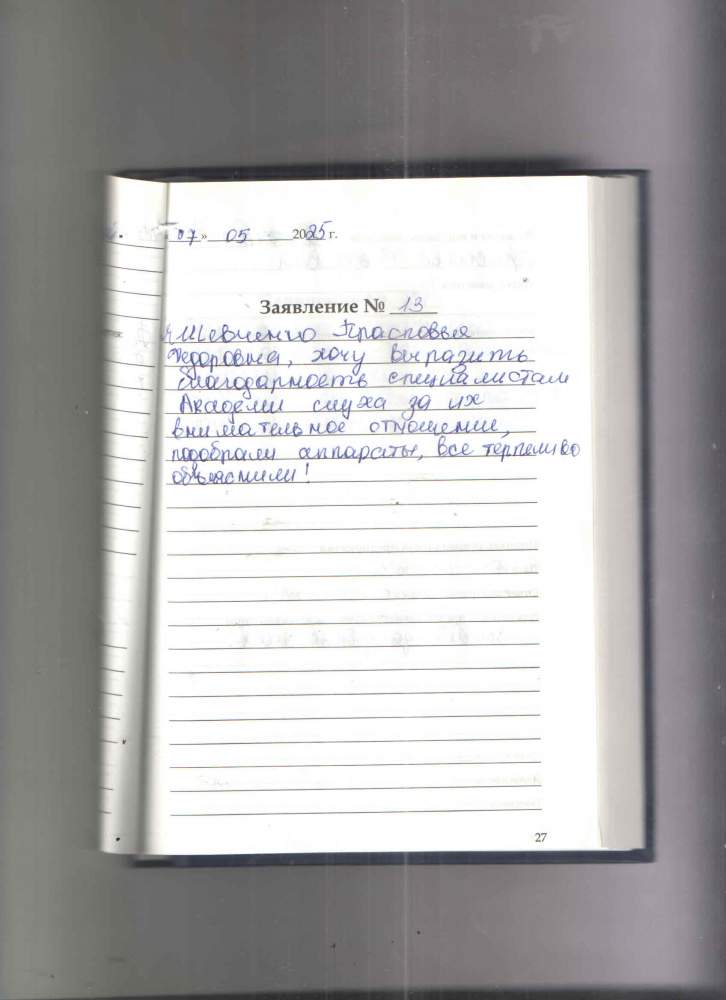 « 07 » 05 2025 г.
Заявление № 13
Я Шевченко Прасковья
Федоровна, хочу выразить
благодарность специалистам
Академии слуха за их
внимательное отношение,
подобрали аппараты, все терпеливо
объяснили!
27